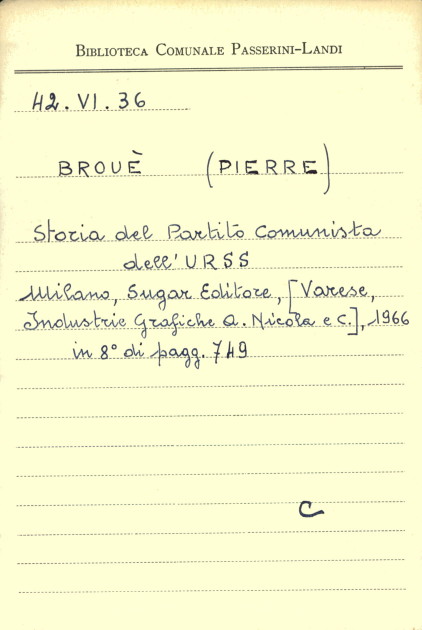 BIBLIOTECA COMUNALE PASSERINI-LANDI
42.VI.36
BROUÈ (PIERRE)
Storia del Partito Comunista
dell'URSS
Milano, Sugar Editore, [Varese,
Industrie Grafiche A. Nicola e C.], 1966
in 8° di pagg. 749
C